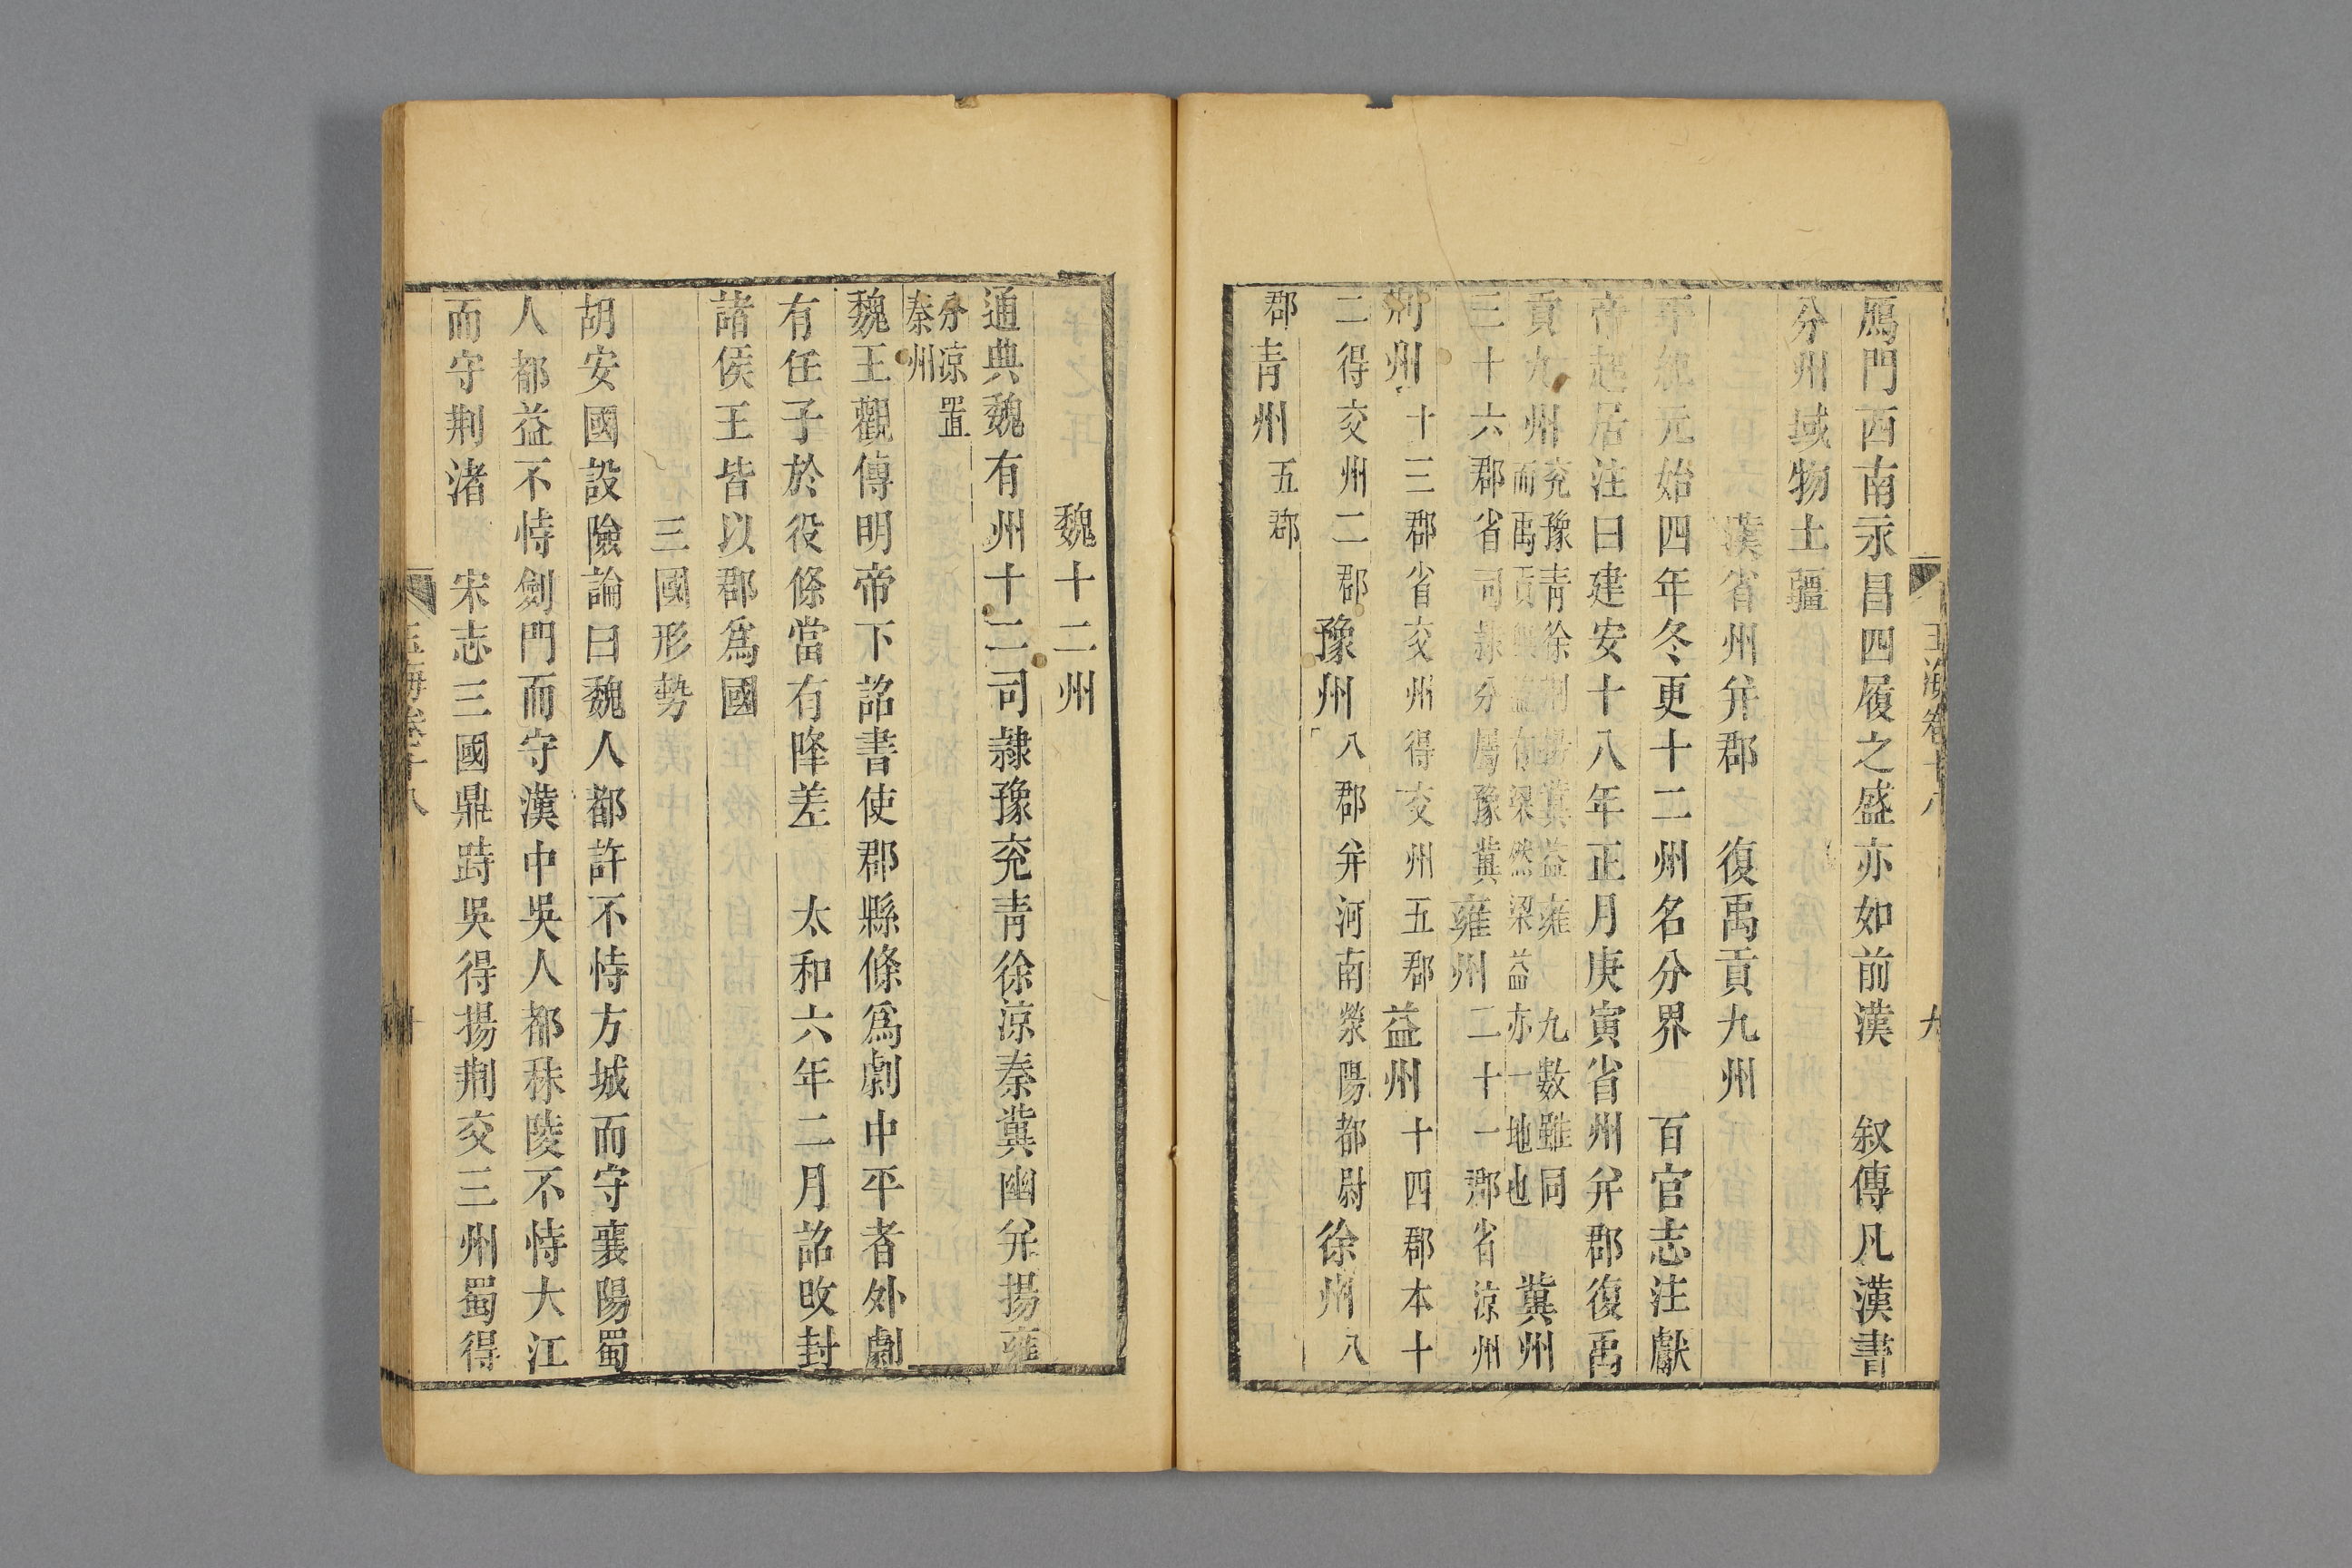 玉海卷十八 九
鴈門西南永昌四履之盛亦如前漢 叙傳凡漢書
分州域物土疆
漢省州并郡 復禹貢九州
平紀元始四年冬更十二州名分界 百官志注獻
帝起居注曰建安十八年正月庚寅省州并郡復禹
貢九州兖豫青徐荆揚冀益雍九數雖同而禹貢無益有梁然梁益亦一地也 冀州
三十六郡省司隷分屬豫冀雍州二十一郡省涼州
荆州十三郡省交州得交州五郡益州十四郡本十
二得交州二郡豫州八郡并河南滎陽都尉徐州八
郡青州五郡
魏十二州
通典魏有州十二司隷豫兖青徐涼秦冀幽并揚雍
分涼置
秦州
魏王觀傳明帝下詔書使郡縣條爲劇中平者外劇
有任子於役條當有降差 太和六年二月詔改封
諸侯王皆以郡爲國
三國形勢
胡安國設險論曰魏人都許不恃方城而守襄陽蜀
人都益不恃劍門而守漢中吳人都秣陵不恃大江
而守荆渚 宋志三國鼎跱吳得揚荆交三州蜀得
玉海卷十八 十